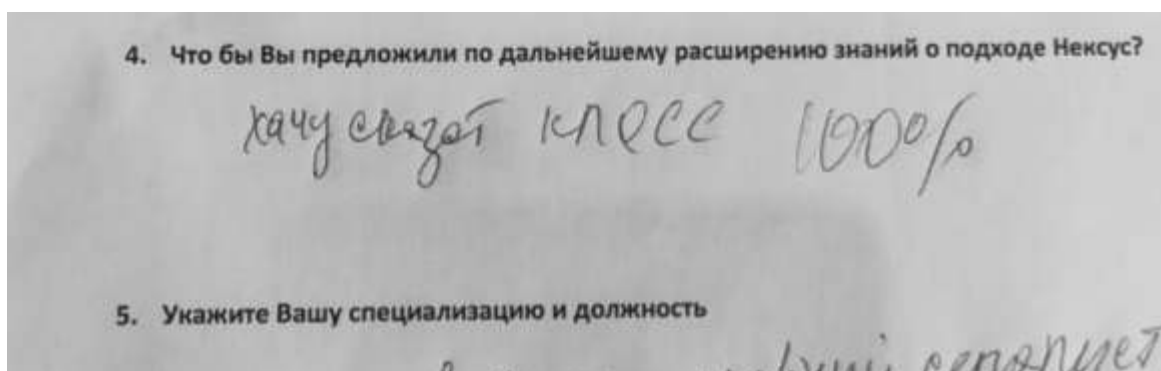 4. Что бы Вы предложили по дальнейшему расширению знаний о подходе Нексус?
хачу сказат класс 100%
5. Укажите Вашу специализацию и должность